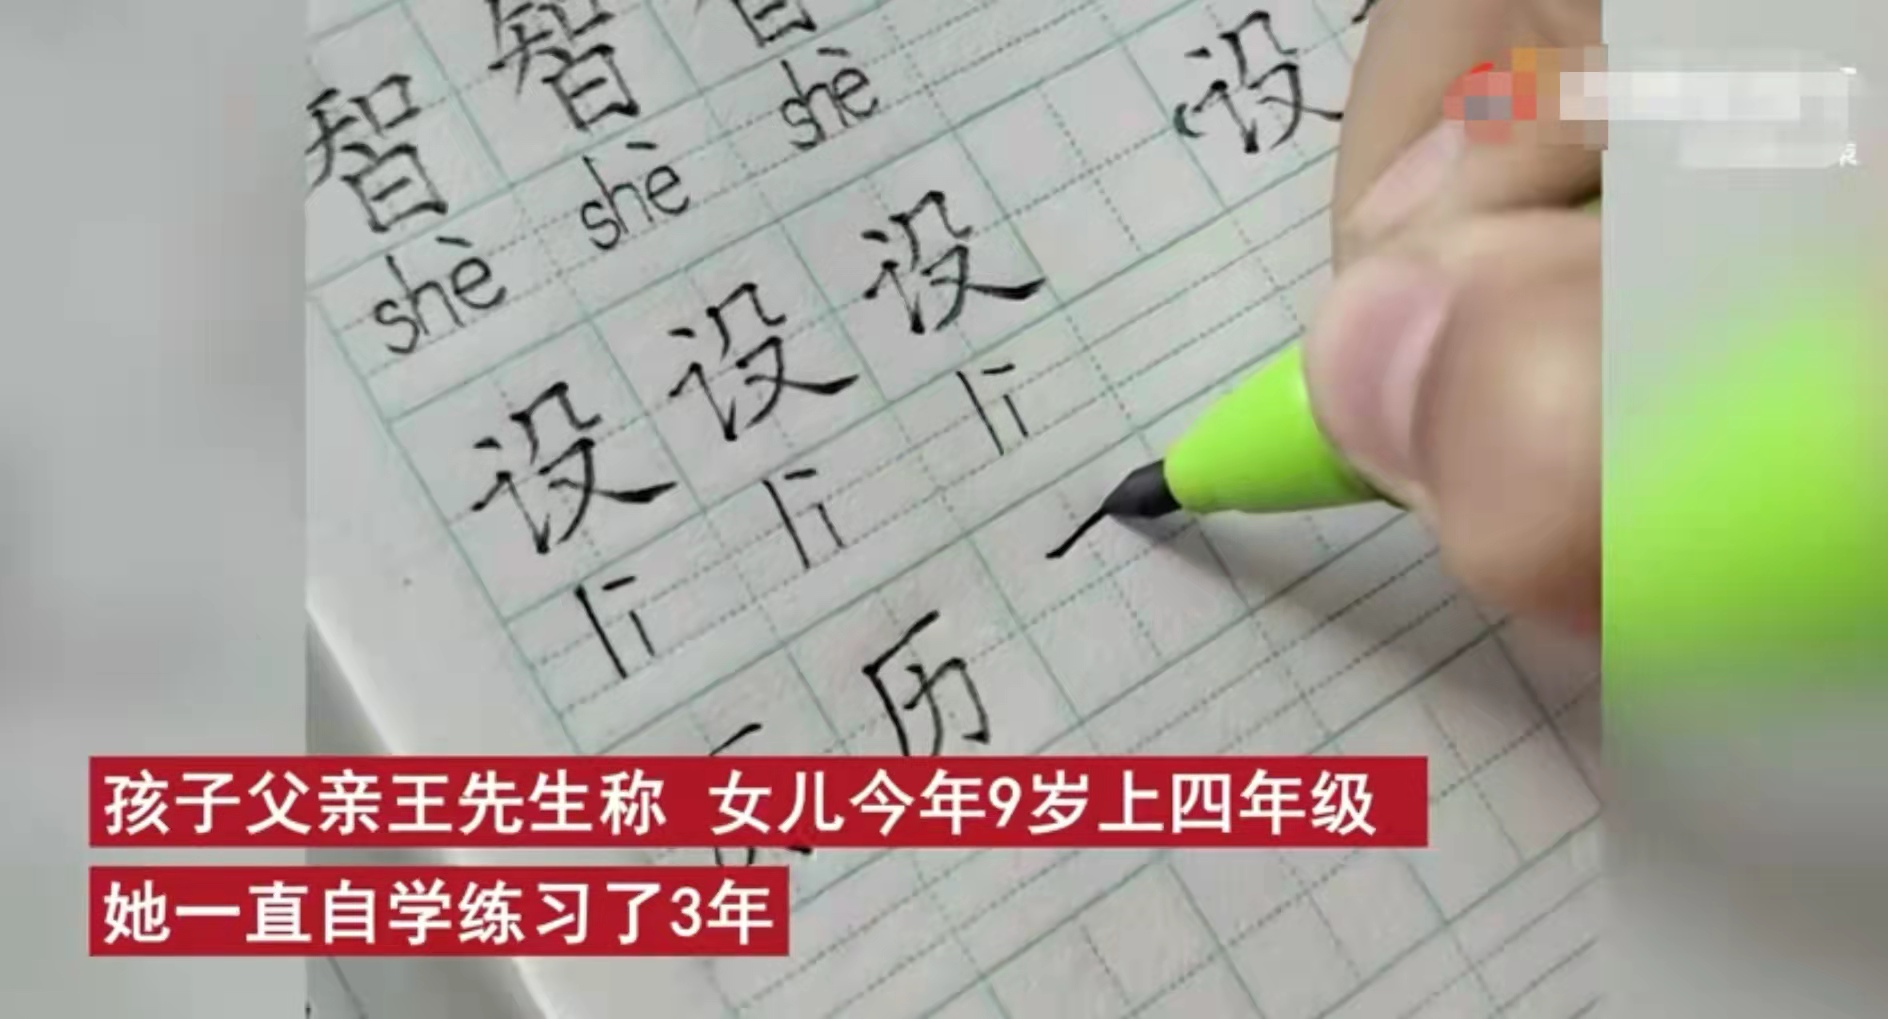 智 智 智
shè shè shè
设 设 设 设
lì lì lì
历 历 一
孩子父亲王先生称 女儿今年9岁上四年级
她一直自学练习了3年